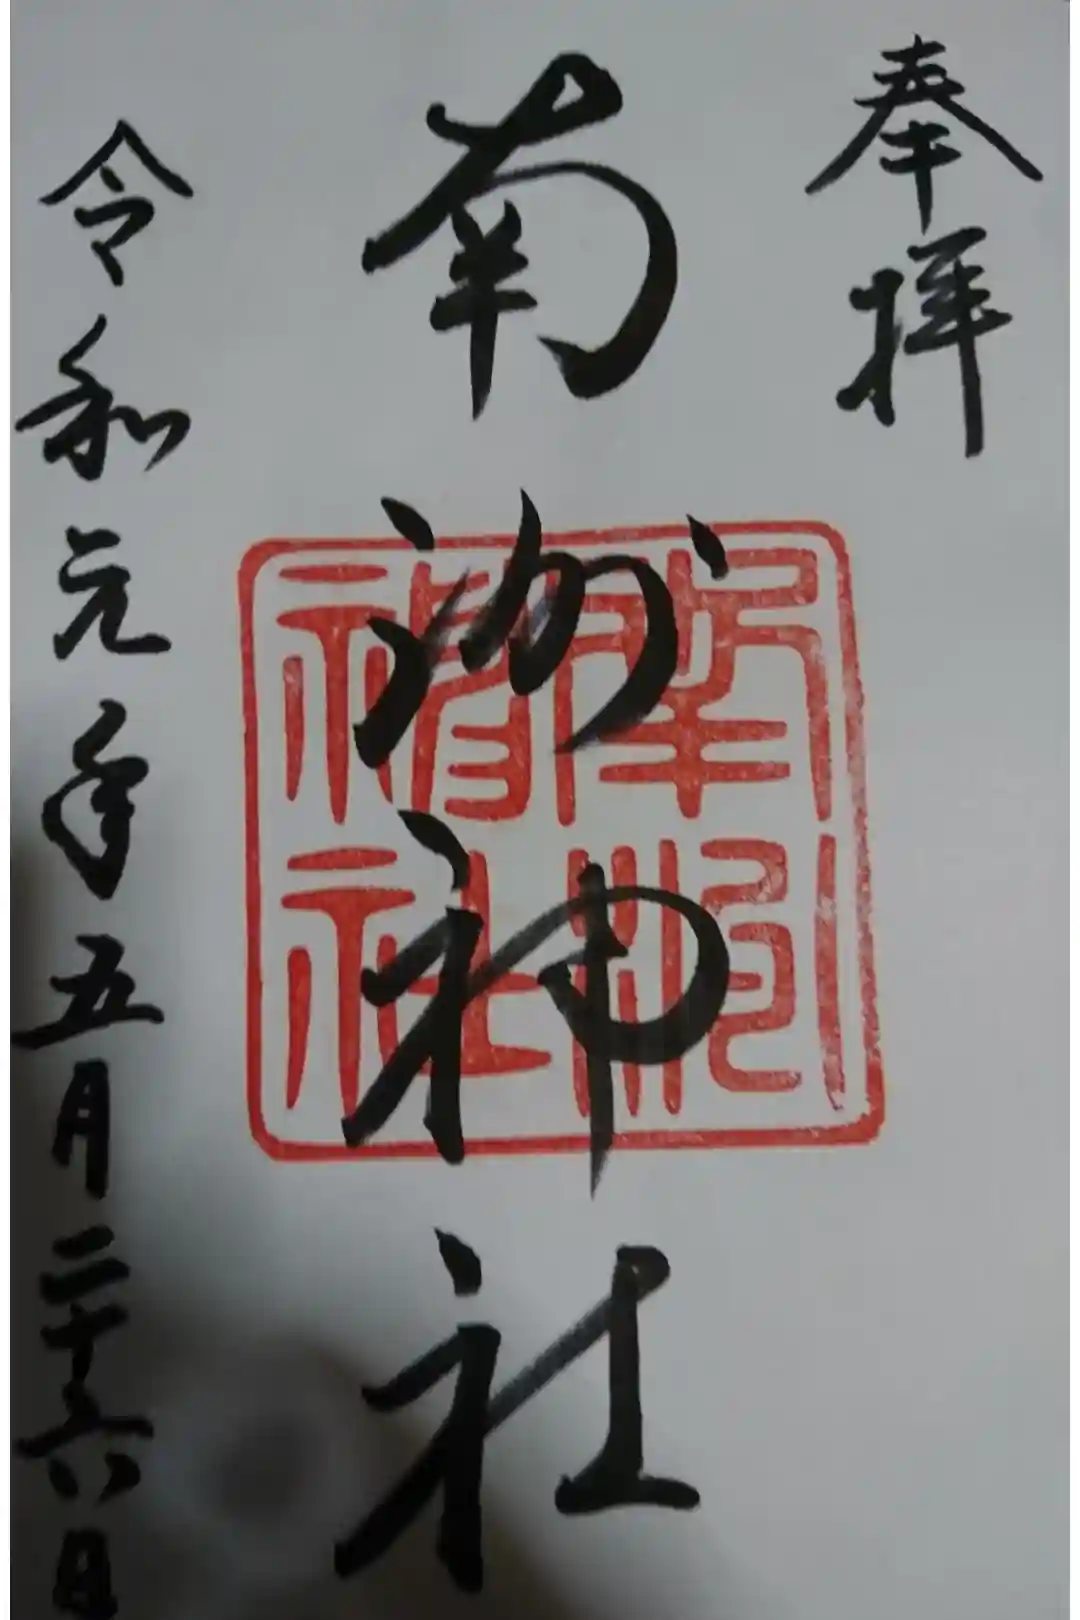 奉拝
南洲神社
令和元年五月二十六日